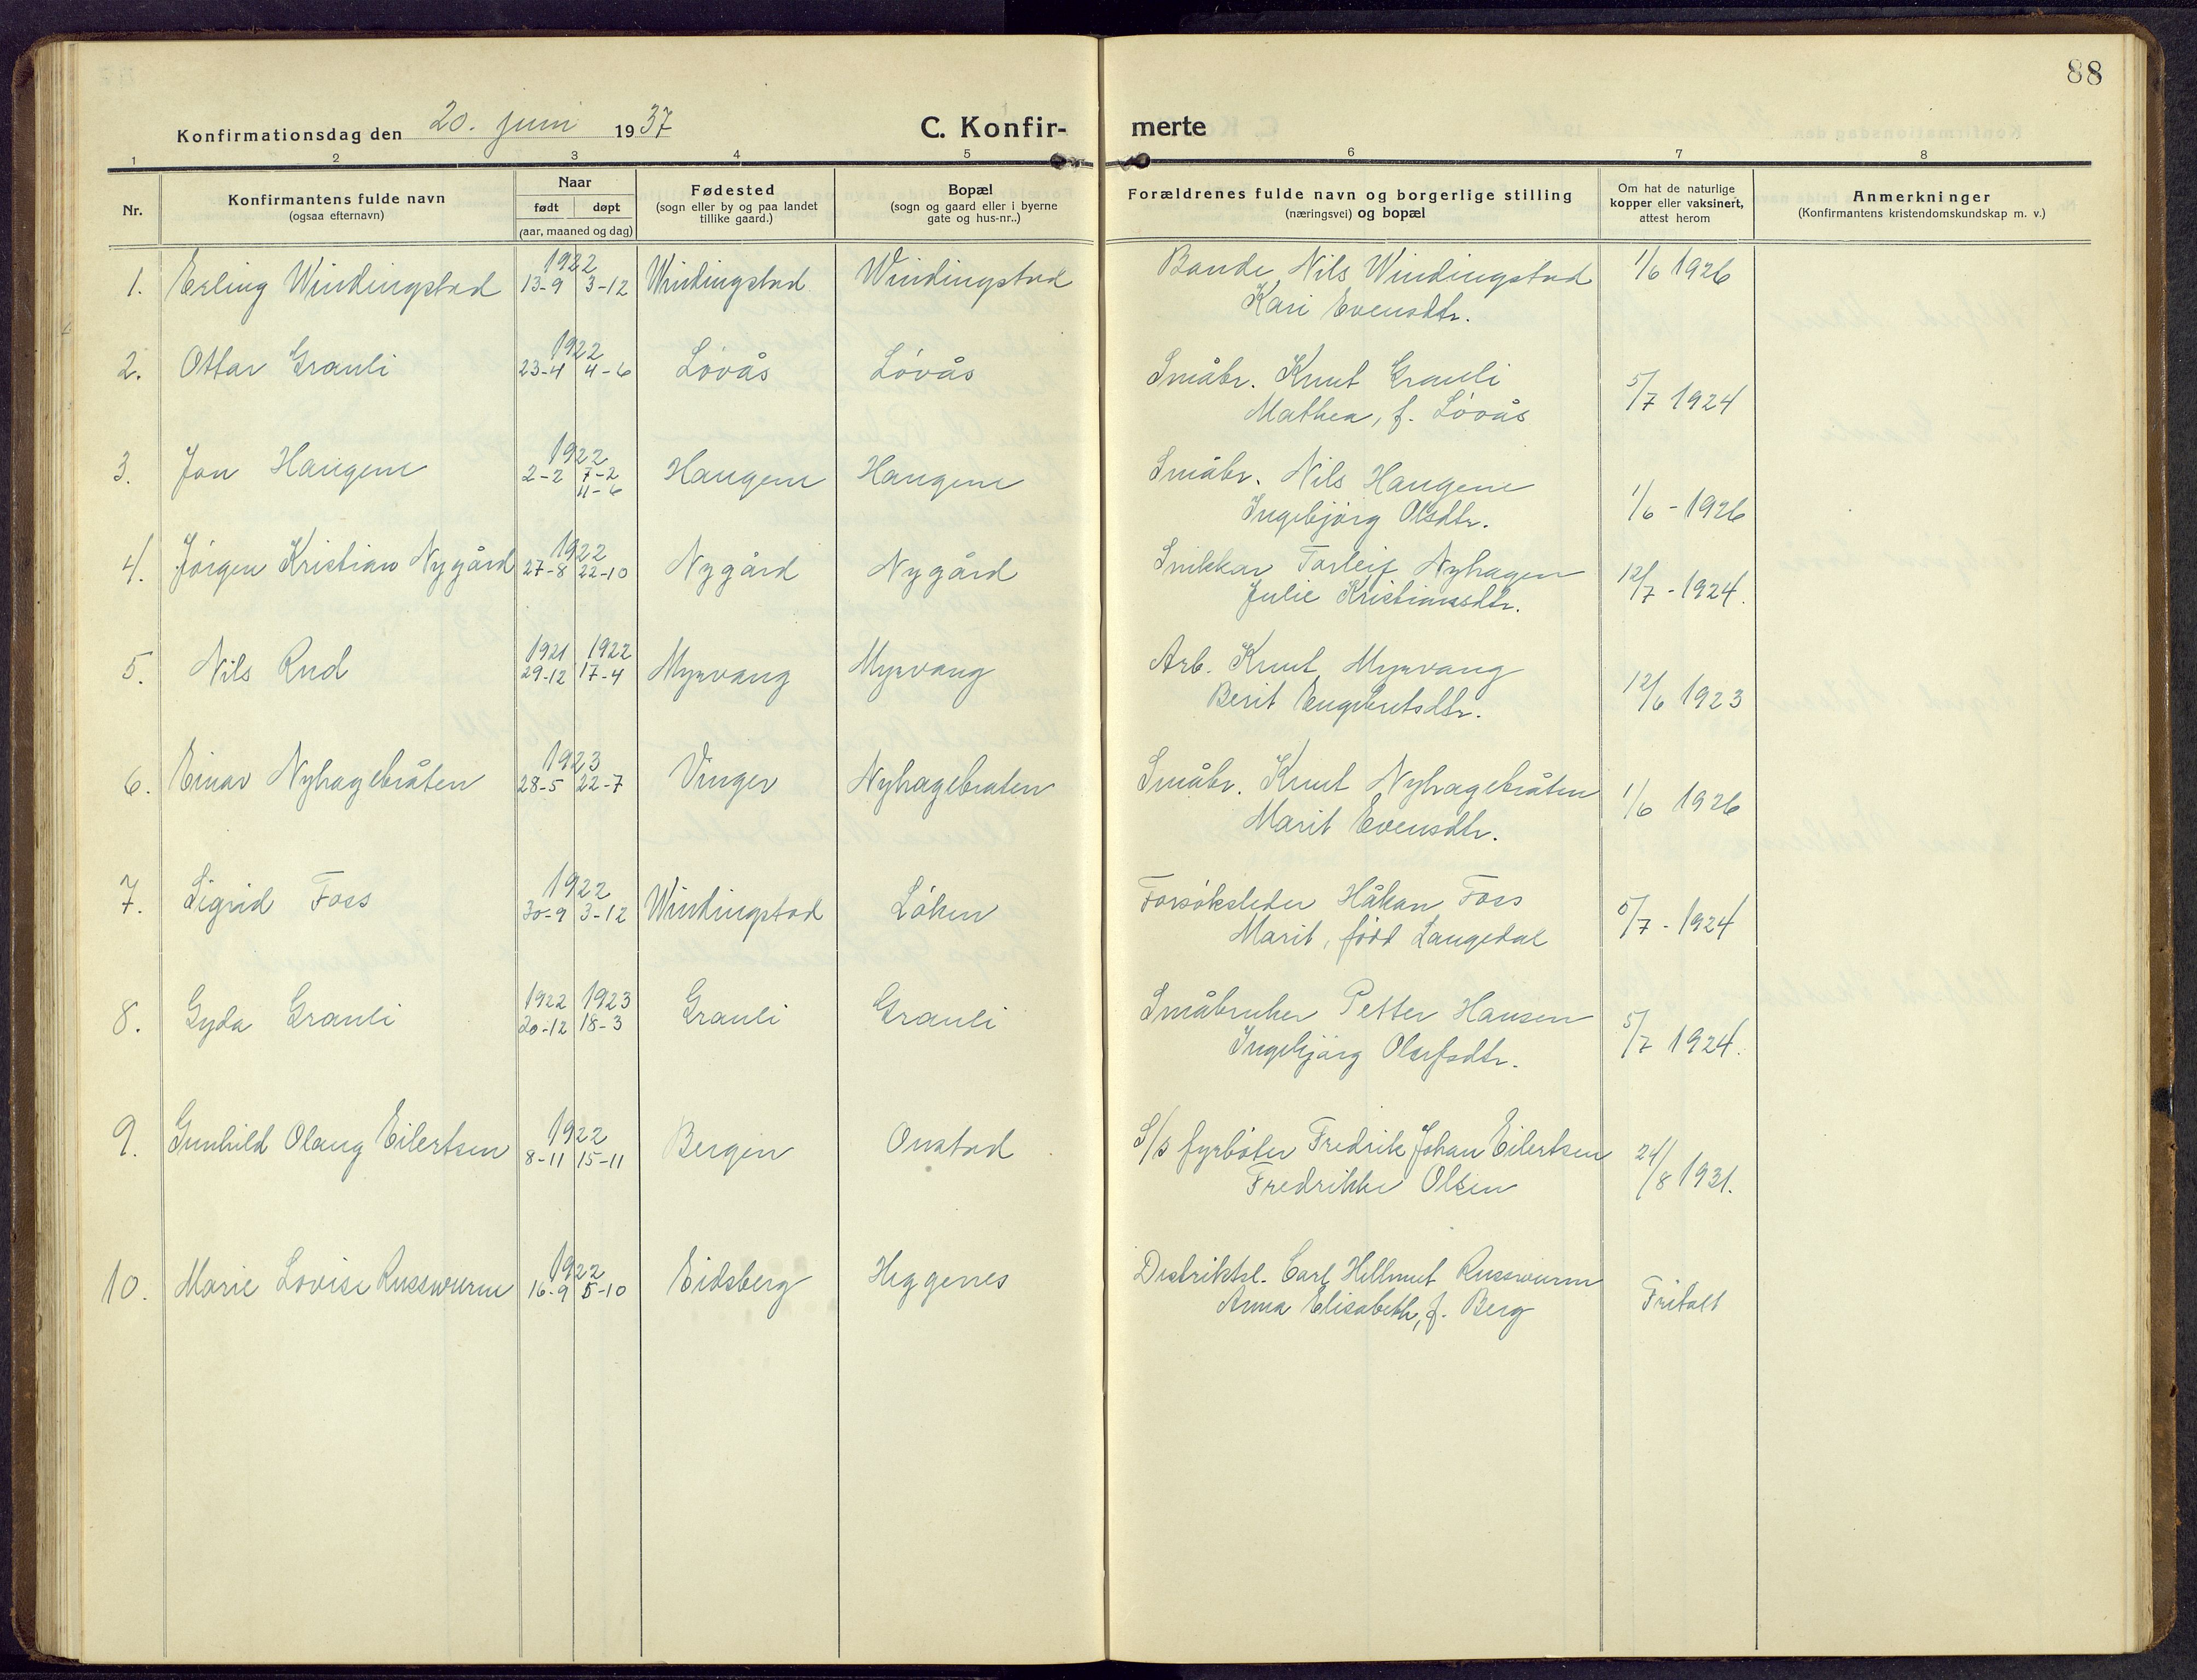 88
Konfirmationsdag den 20. juni 1937
C. Konfir- merte
1 2 3 4 5 6 7 8
Nr.
Konfirmantens fulde navn
(ogsaa efternavn)
Naar
født døpt
(aar, maaned og dag)
Fødested
(sogn eller by og paa landet
tillike gaard.)
Bopæl
(sogn og gaard eller i byerne
gate og hus-nr..)
Forældrenes fulde navn og borgerlige stilling
(næringsvei) og bopæl
Om hat de naturlige
kopper eller vaksinert,
attest herom
Anmerkninger
(Konfirmantens kristendomskundskap m. v.)
1922
1. Erling Windingstad 13-9 3-12 Windingstad Windingstad Bonde Nils Windingstad 1/6 1926
Kari Evensdtr.
1922
2. Ottar Grauli 23-4 4-6 Løvås Løvås Småbr. Knut Grauli 5/7 1924
Mathea, f. Løvås
1922
3. Jon Haugene 2-2 7-2 Haugene Haugene Småbr. Nils Haugene 1/6 - 1926
11-6
Ingebjørg Olsdtr.
1922
4. Jørgen Kristian Nygård 27-8 22-10 Nygård Nygård Snikkar Torleif Nyhagen 12/7 - 1924.
Julie Kristiansdtr.
1921 1922
5. Nils Rud 29-12 17-4 Myrvang Myrvang Arb. Knut Myrvang 12/6 1923
Berit Engebretsdtr.
1923
6. Einar Nyhagebråten 28-5 22-7 Vinger Nyhagebraten Småbr. Knut Nyhagebråten 1/6 1926
Marit Evensdtr.
1922
7. Sigrid Foss 30-9 3-12 Windingstad Løken Forsøksleder Håkan Foss 5/7 - 1924
Marit, född Langedal
1922 1923
8. Gyda Grauli 20-12 18-3 Grauli Grauli Småbruker Petter Hansen 5/7 1924.
Ingebjørg Olafsdtr.
1922
9. Gunhild Olaug Eilertsen 8-11 15-11 Bergen Onstad S/s fyrbøter Fredrik Johan Eilertsen 24/8 1931.
Fredrikke Olsen
1922
10. Marie Lovise Russwurm 16-9 5-10 Eidsberg Heggenes Distriktsl. Carl Hellmut Russwurm Fritatt
Anna Elisabeth, f. Berg